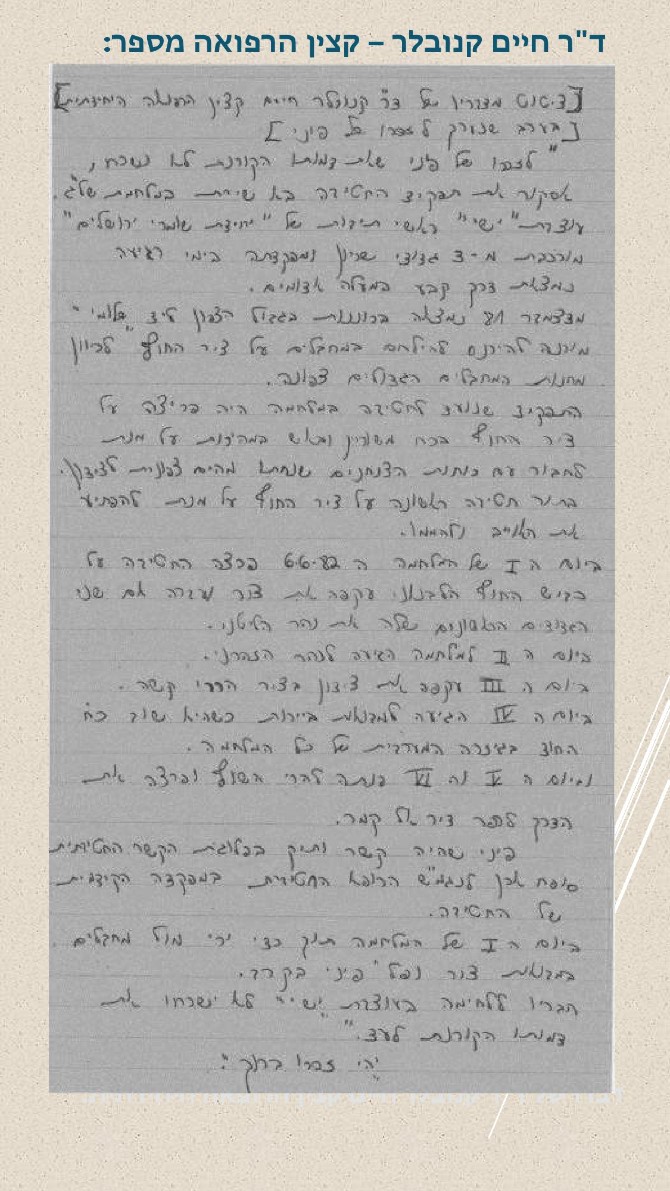 ד"ר חיים קנובלר – קצין הרפואה מספר:
[ציטוט מדבריו של דר' קנובלר חיים קצין הרפואה החטיבתית]
[בערב שנערך לזכרו של פיני]
" לזכרו של פיני שאת דמותו הקורנת לא נשכח,
אסקור את תפקיד החטיבה בא שירת במלחמת של"ג.
עוצבת "ישי" ראשי תיבות של "יחידת שומרי ירושלים"
מורכבת מ-3 גדודי שריון ומפקדתה בימי רגיעה
נמצאת דרך קבע במעלה אדומים.
מדצמבר 81 נמצאה בכוננות בגבול הצפון ליד
מוכנה להיכנס ולהילחם במחבלים על ציר החוף לכיוון
מחנות המחבלים הגדולים צפונה.
התפקיד שנועד לחטיבה במלחמה היה פריצה על
ציר החוף בכח משוריין ואש במהירות על מנת
לחבור עם כוחות הצנחנים שנחתו מהים צפונית לצידון.
בתור חטיבה ראשונה על ציר החוף על מנת להפתיע
את האויב ולהממו.
ביום ה I של המלחמה ה 6.6.82 פרצה החטיבה על
כביש החוף הלבנוני עקפה את צור ועברה עם שני
הגדודים הראשונים שלה את נהר הליטני.
ביום ה II למלחמה הגיעה לנהר הזהרני.
ביום ה III עקפה את צידון בציר הררי קשה.
ביום ה IV הגיעה למבואות ביירות כשהיא שוב כח
החוד בגיזרה המערבית של כל המלחמה.
וביום ה V וה VI פנתה להרי השוף ופרצה את
הדרך לכפר דיר אל קמר.
פיני שהיה קשר ותיק בפלוגת הקשר החטיבתית
סופח אכן לנגמ"ש הרופא החטיבתי במפקדה הקידמית
של החטיבה.
ביום ה I של המלחמה תוך כדי ירי מול מחבלים
במבואות צור נפל פיני בקרב.
חבריו ללחימה בעוצבת "ישי" לא ישכחו את
דמותו הקורנת לעד."
יהי זכרו ברוך".